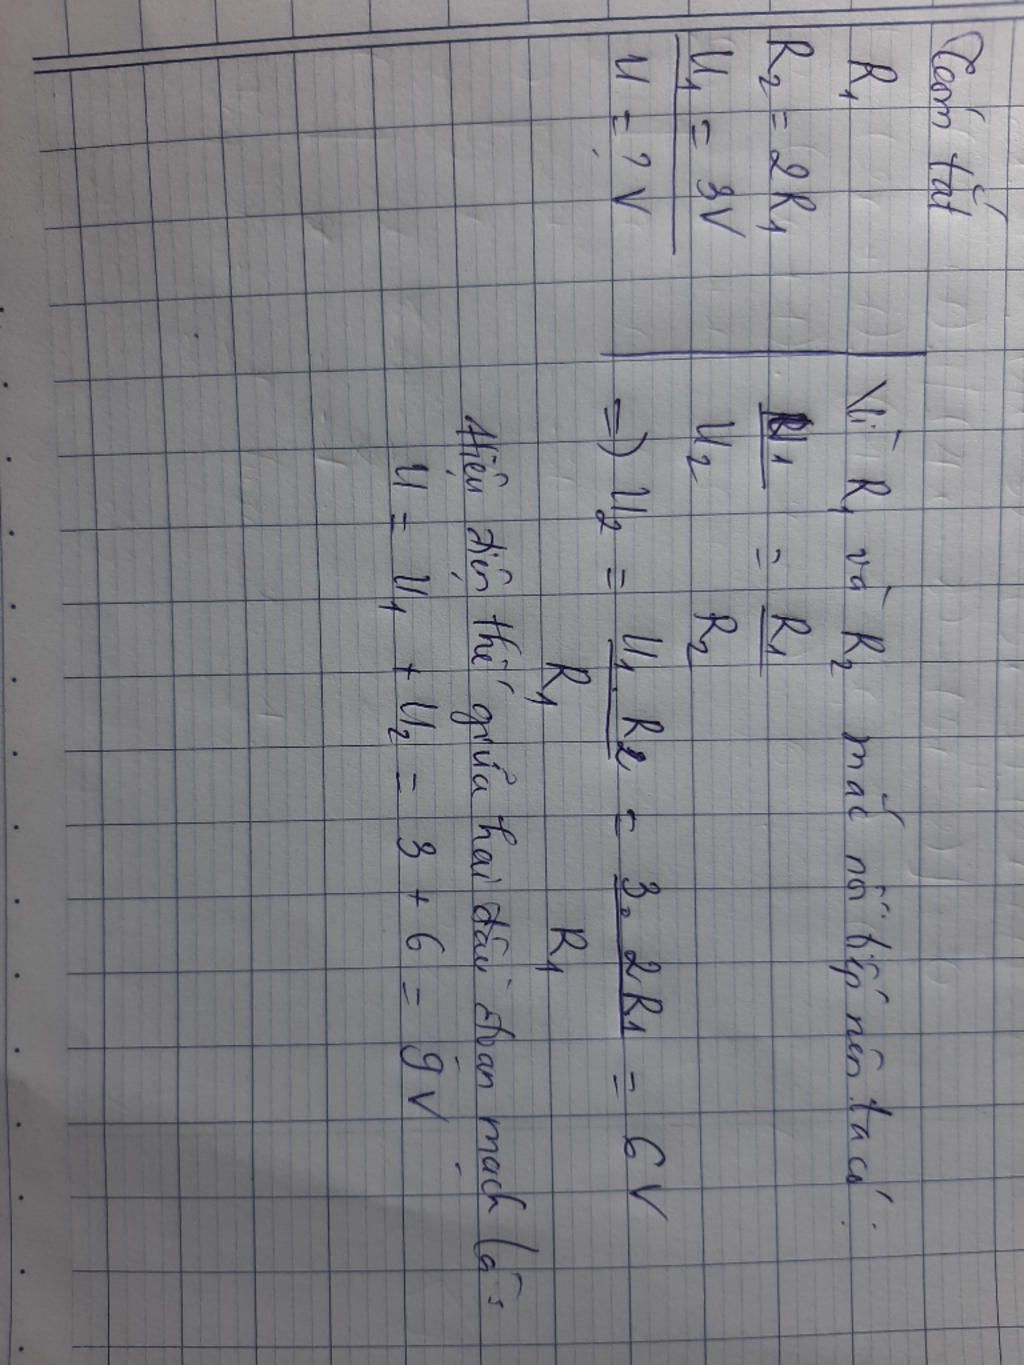 Tóm tắt
R₁
R₂ = 2R₁
U₁ = 3V
U = ? V
Vì R₁ và R₂ mắc nối tiếp nên ta có
U₁ = R₁
U₂ R₂
=) U₂ = U₁.R₂ = 3.2R₁ = 6V
R₁ R₁
Hiệu điện thế giữa hai đầu đoạn mạch là:
U = U₁ + U₂ = 3 + 6 = 9V